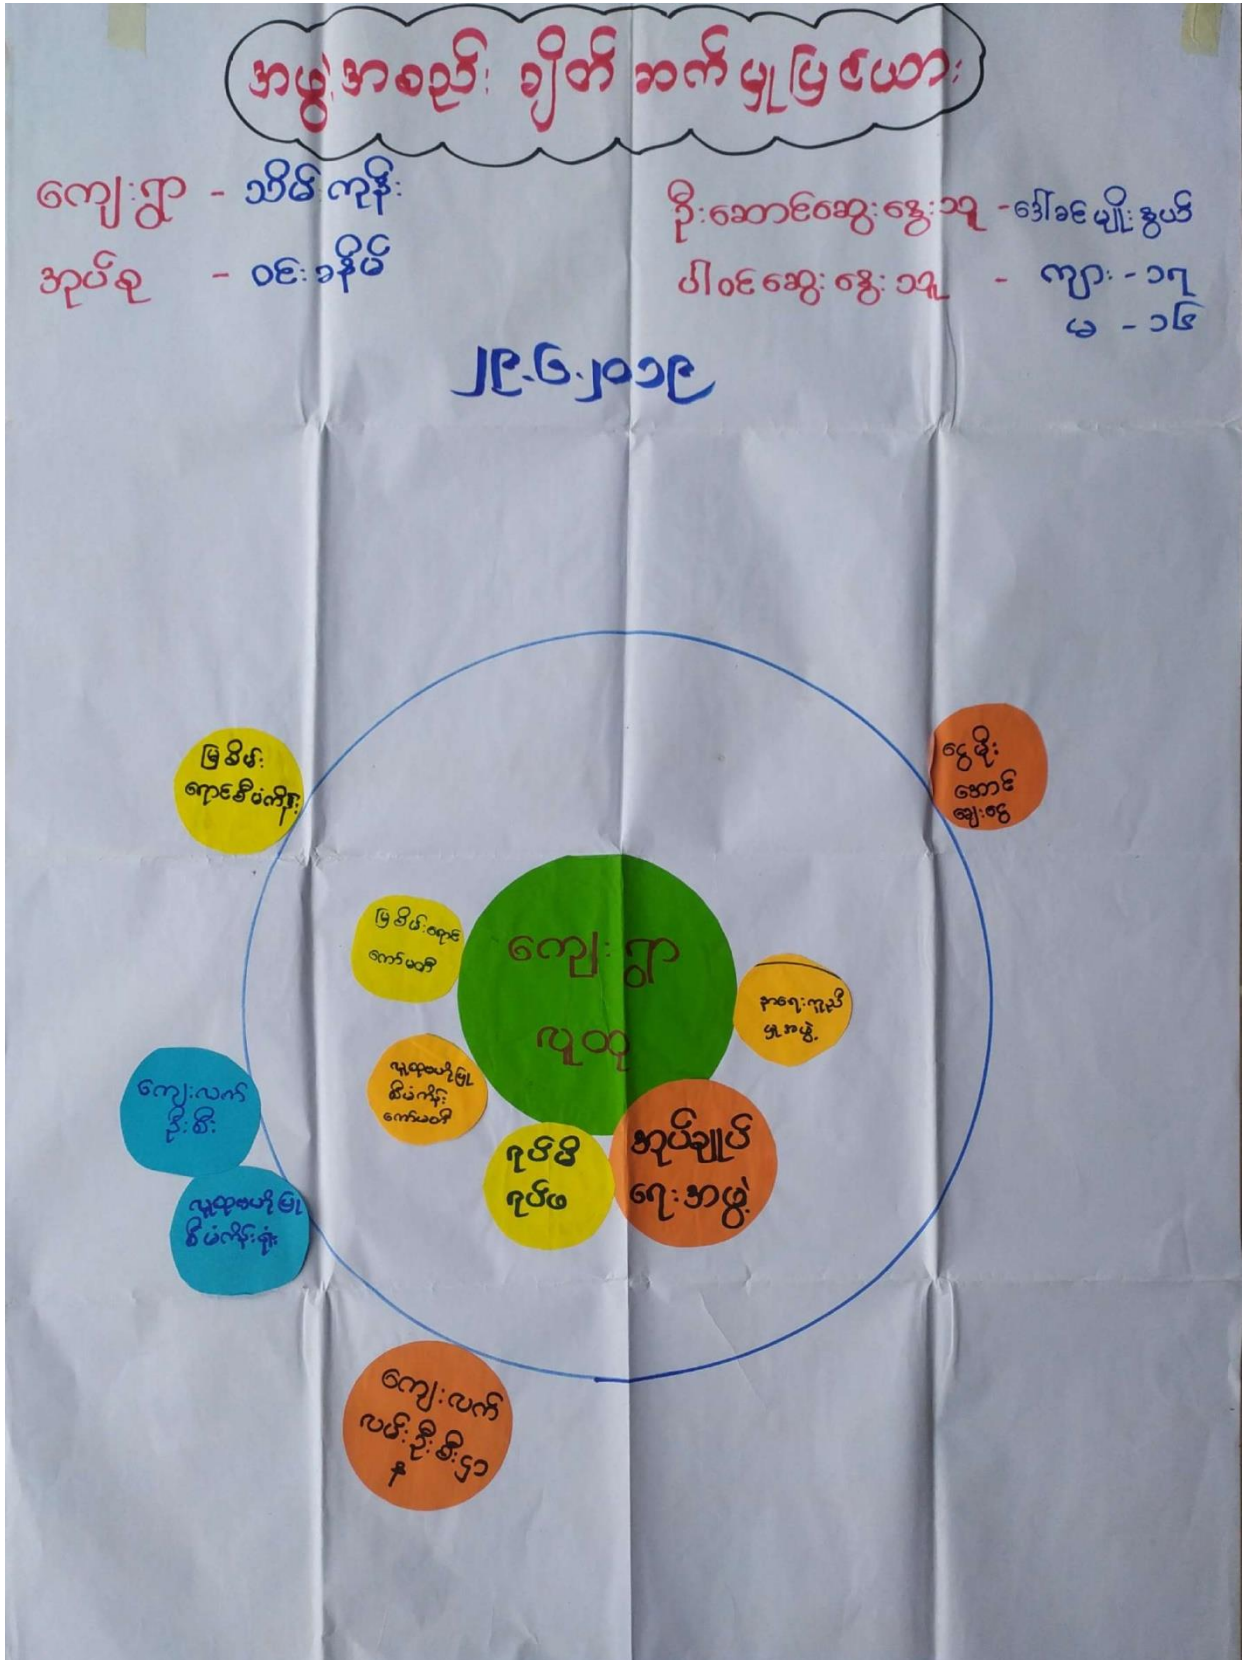 အဖွဲ့အစည်း ချိတ်ဆက်မှုပြဇယား
ကျေးရွာ - သိမ်ကုန်း
ဦးဆောင်ဆွေးနွေးသူ - ဒေါ်ခင်မျိုးနွယ်
အုပ်စု - ဝင်းခနိမ်
ပါဝင်ဆွေးနွေးသူ - ကျား - ၁၇
မ - ၁၆
၂၉.၆.၂၀၁၉
မြစိမ်း
ရောင်စီမံကိန်း
ငွေမိုး
အောင်
ချေးငွေ
မြစိမ်းရောင်
ကော်မတီ
ကျေးရွာ
လူထု
နာရေးကူညီ
မှုအဖွဲ့
လူထုဗဟိုပြု
စီမံကိန်း
ကော်မတီ
ကျေးလက်
ဦးစီး
ရပ်မိ
ရပ်ဖ
အုပ်ချုပ်
ရေးအဖွဲ့
လူထုဗဟိုပြု
စီမံကိန်းရုံး
ကျေးလက်
လမ်းဦးစီးဌာ
န